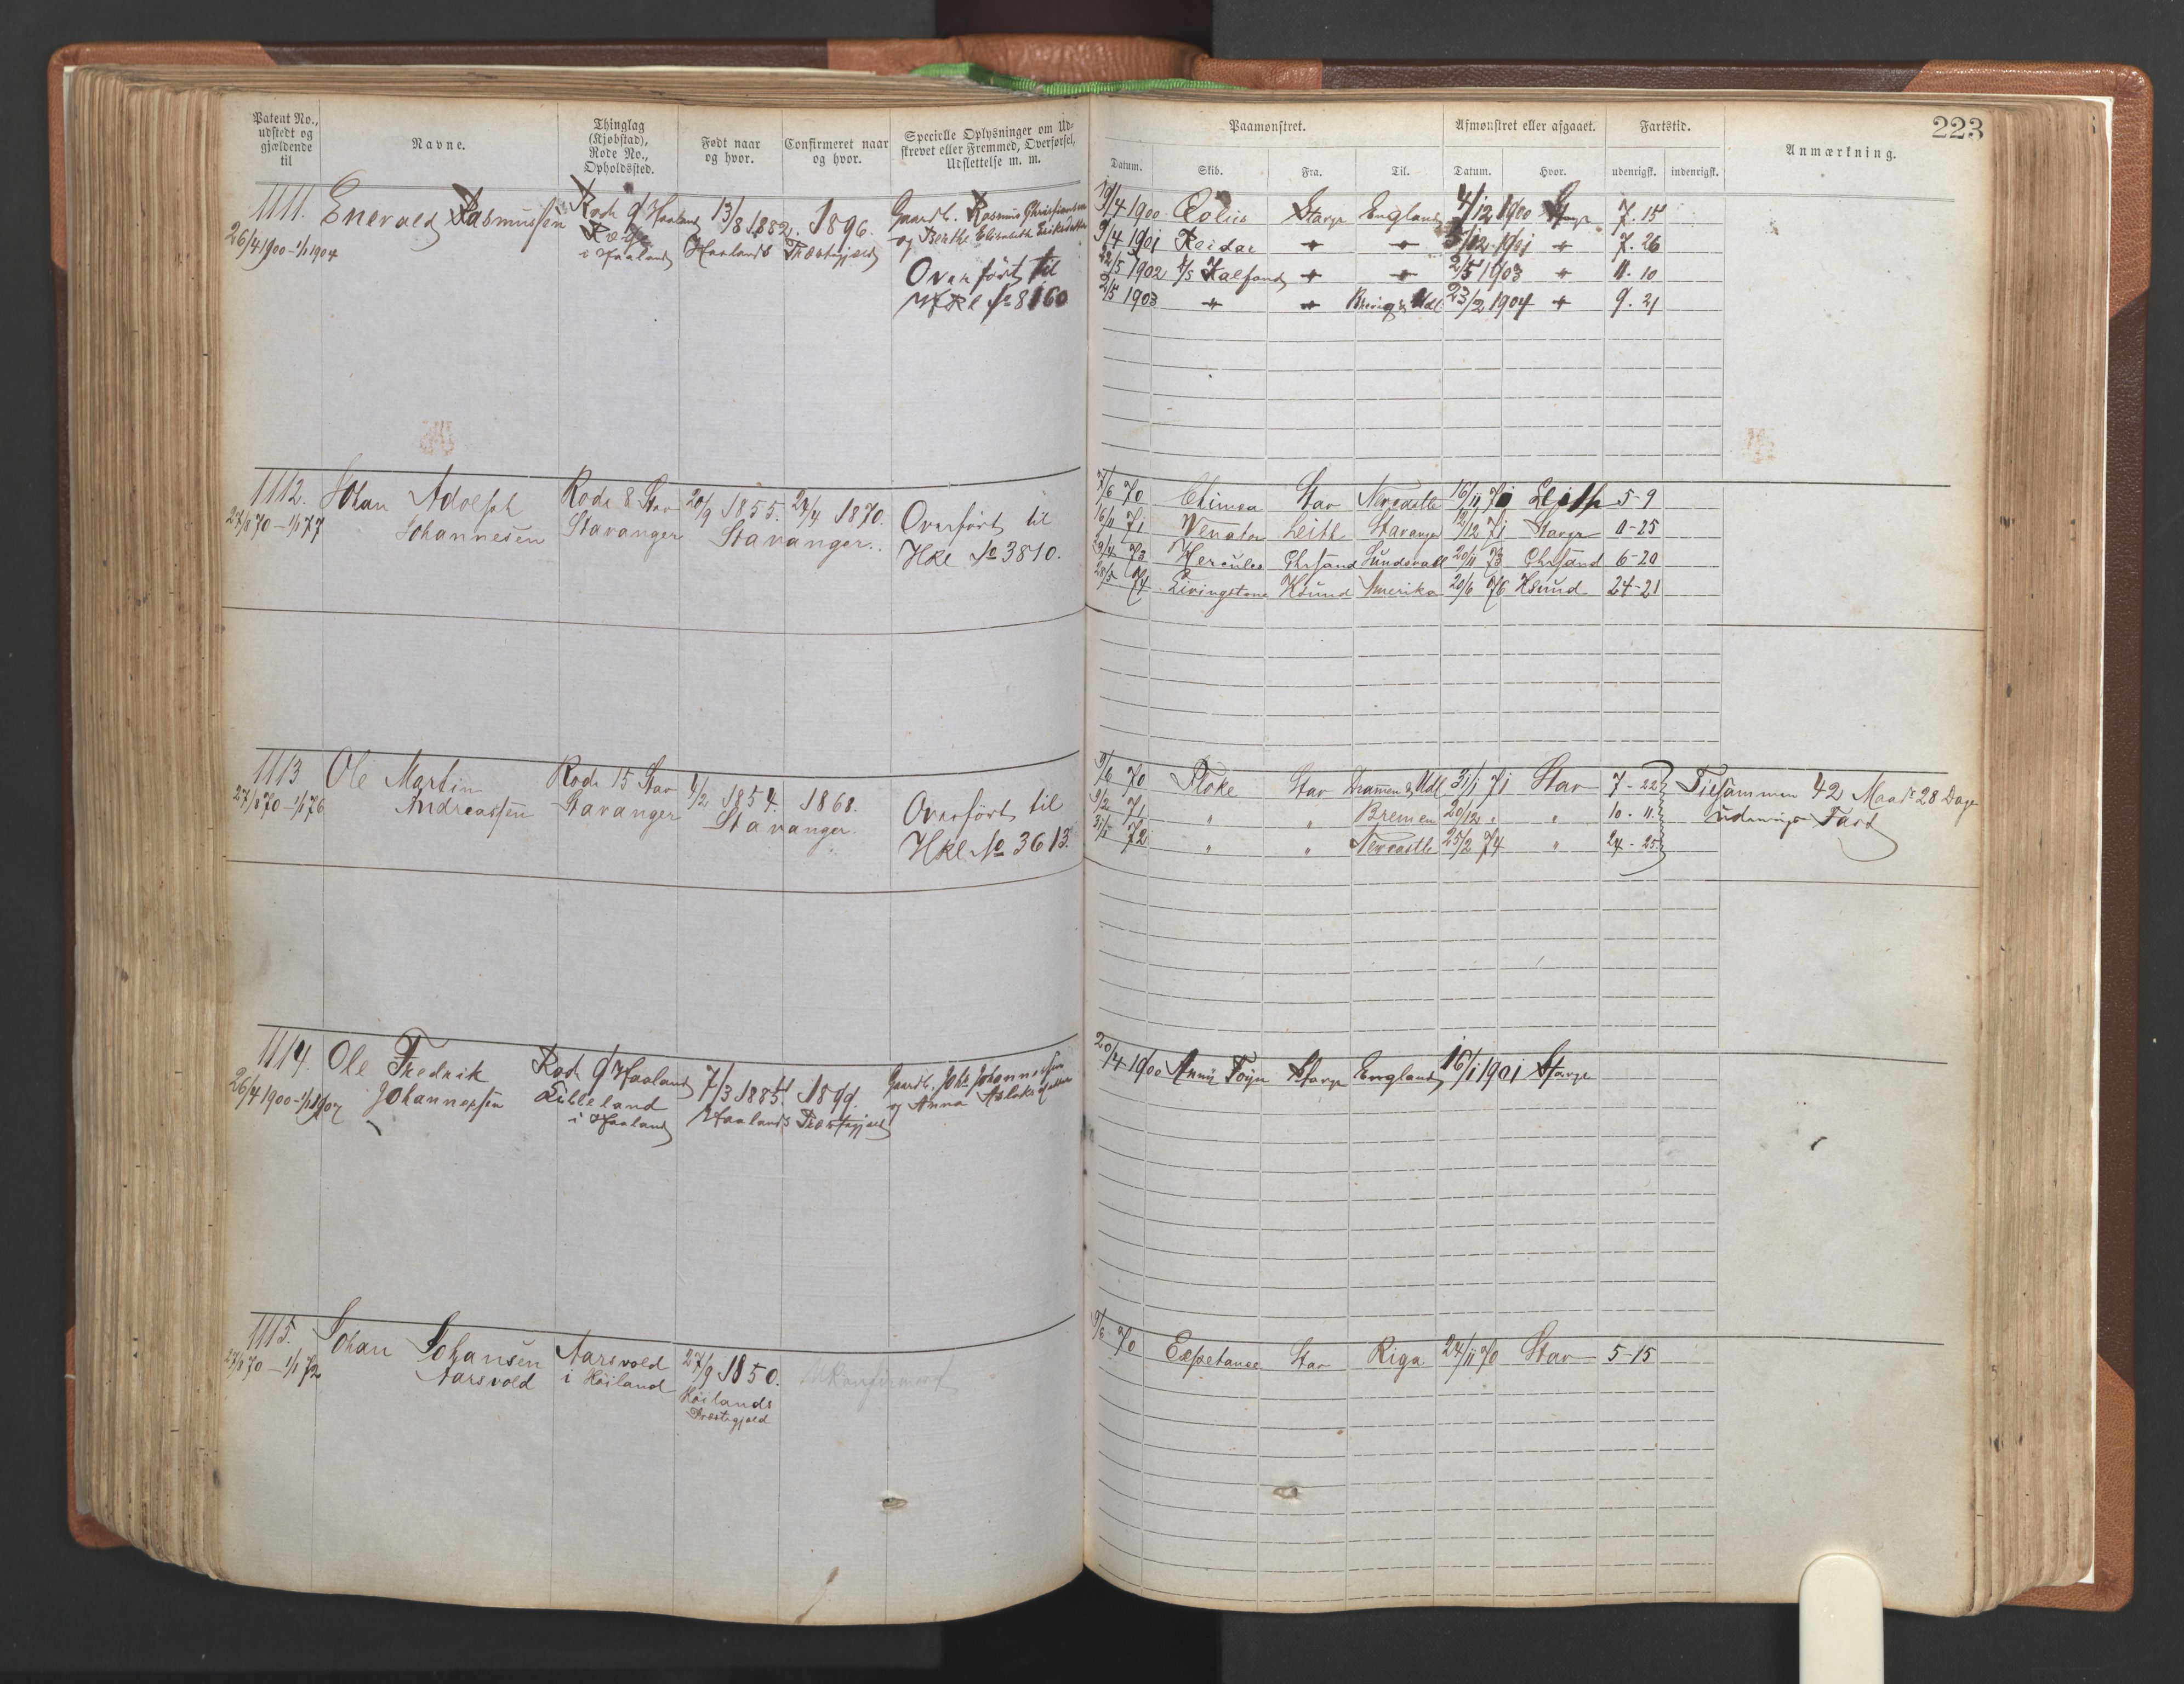 223
Patent No., udstedt og gjældende til
Navne.
Thinglag (Kjøbstad), Rode No., Opholdssted.
Født naar og hvor.
Confirmeret naar og hvor.
Specielle Oplysninger om Udskrevet eller Fremmed, Overførsel, Udslettelse m. m.
Paamønstret.
Afmønstret eller afgaaet.
Fartstid.
Anmærkning.
Datum. Skib. Fra. Til. Datum. Hvor. udenrigsk. indenrigsk.
1111. Enevald Rasmussen Rode 9 Haaland 13/8 1882. 1896. Gaardb. Rasmus Christiansen
26/4 1900 - 1/1 1904 Rege i Haaland Haalands Præstegjæld og Berthe Elisabeth Eriksdatter
Overført til
HKl No 8160
19/4 1900 Eolus Stavgr England 4/12 1900 Stavgr 7. 15
9/4 1901 Reidar " " 5/12 1901 " 7. 26
22/5 1902 S/S Kalfond " " 2/5 1903 " 11. 10
2/5 1903 " " Brevig & Udl. 23/2 1904 " 9. 21
1112. Johan Adolph Rode 8 Stav 20/9 1855. 24/4 1870. Overført til
27/8 70 - 1/1 77 Johannesen Stavanger Stavanger. Hkl No 3810.
7/6 70 Stav Newcastle 16/11 71 Leith 5-9
16/11 71 Venator Leith Stavanger 12/12 71 Stavgr 0-25
29/4 73 Hercules Chrsand Sundsvall 20/11 73 Chrsand 6-20
28/5 74 Livingstone Hsund Amerika 20/6 76 Hsund 24-21
1113 Ole Martin Rode 15 Stav 4/2 1854. 1868. Overført til
27/8 70 - 1/1 76 Andreassen Stavanger Stavanger. Hkl No 3613.
9/6 70 Floke Stav Dramen & Udl 31/1 71 Stav 7-22 Tilsammen 42 Maadr 28 Dage
9/2 71 " " Bremen 20/12 " " 10-11. udenrigs Fart
31/1 72 " " Newcastle 25/2 74 " 24-25
1114. Ole Fredrik Rode 9 Haaland 7/3 1885. 1899. Gaardb. Johs Johannessen
26/4 1900 - 1/1 1907 Johannessen Lilleland i Haaland Haalands Præstegjæld og Anna Aslaksdatter
20/4 1900 Anny Foyn Stavgr England 16/1 1901 Stavgr
1115. Johan Johansen Aarsvold 27/9 1850.
27/8 70 - 1/1 72 Aarsvold i Høiland Høilands Præstegjæld
9/6 70 Expetance Stav Riga 24/11 70 Stav 5-15